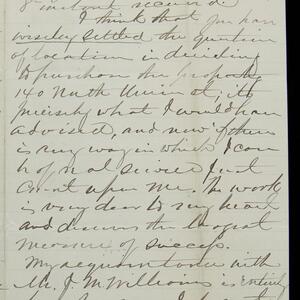 instant received.
I think that you have
wisely settled the question
of location in deciding
to purchase the property
140 North Union st; its
precisely what I would have
advised, and now if there
is any way in which I can
be of real service just
Count upon me. The work
is very dear to my heart
and deserves the largest
measure of success.
My acquaintance with
Mr. J. M. Williams is entirely